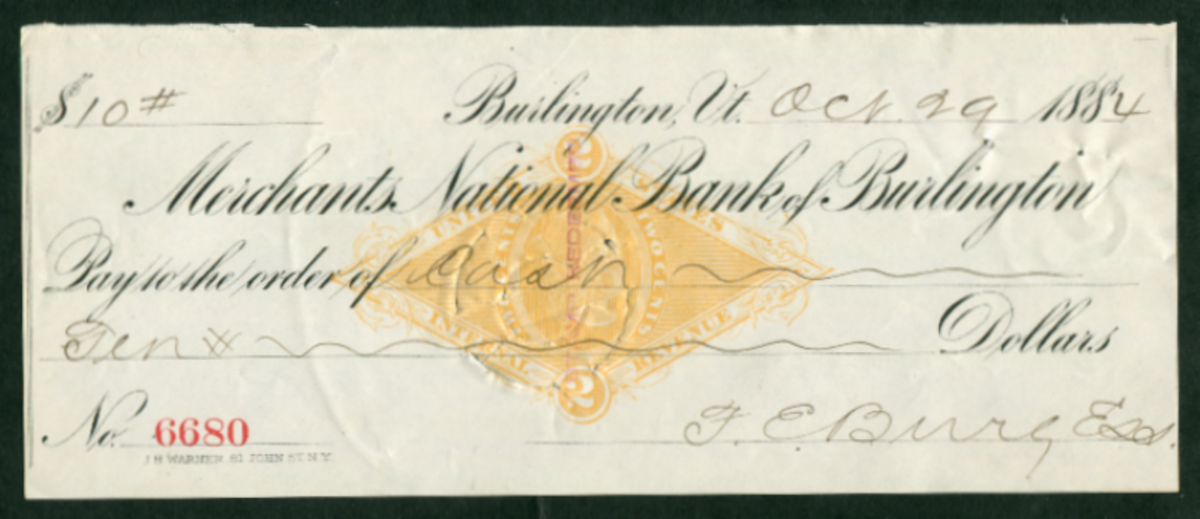 $10 #
Burlington, Vt. Oct. 29 1884
Merchants National Bank of Burlington
Pay to the order of Cash
Ten
Dollars
No. 6680
J H WARNER. 81 JOHN ST. N.Y.
F. E. Burg
2
UNITED STATES
TWO CENTS
INTERNAL REVENUE
2